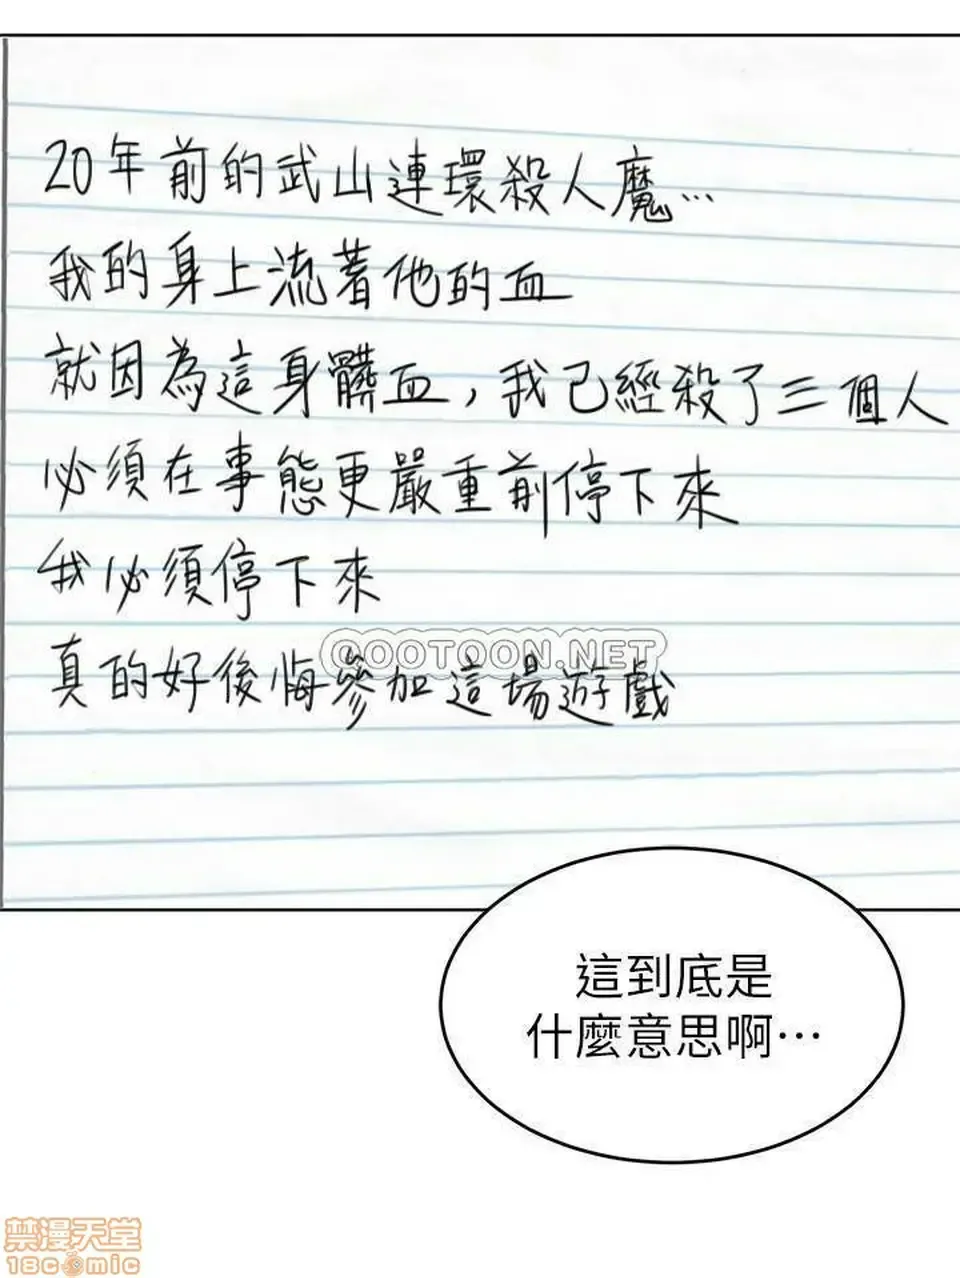 20年前的武山連環殺人魔…
我的身上流著他的血
就因為這身髒血，我已經殺了三個人
必須在事態更嚴重前停下來
我必須停下來
TOOTOON.NET
真的好後悔參加這場遊戲
這到底是
什麼意思啊…
禁漫天堂
18comic